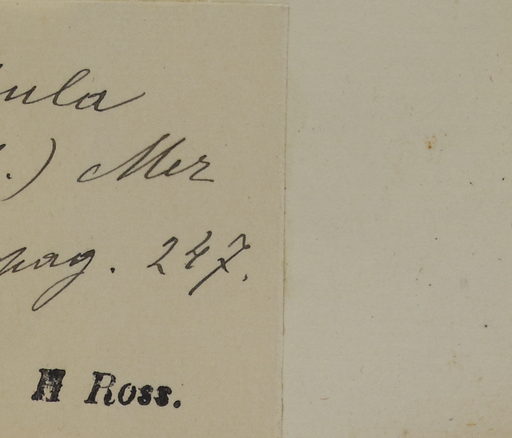 ula
.) Mer
pag. 247.
H Ross.